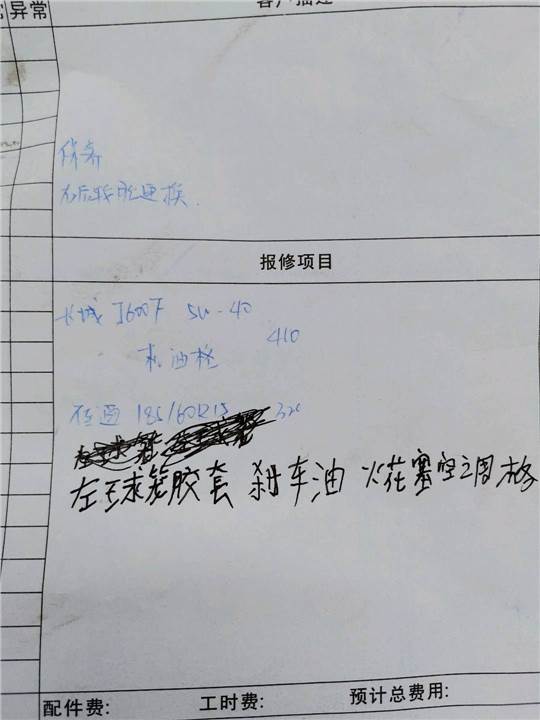 异常
客户描述
保养
右后轮胎更换
报修项目
长城 J600F 5W-40
410
机油格
佳通 185/60R15 320
左球笼胶套 刹车油 火花塞 空调格
配件费: 工时费: 预计总费用: